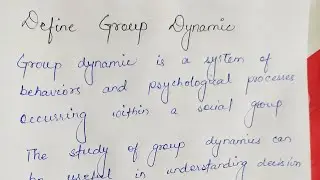 Define Group Dynamic
Group dynamic is a system of
behaviors and psychological processes
occurring within a social group
The study of group dynamics can
be useful in understanding decision